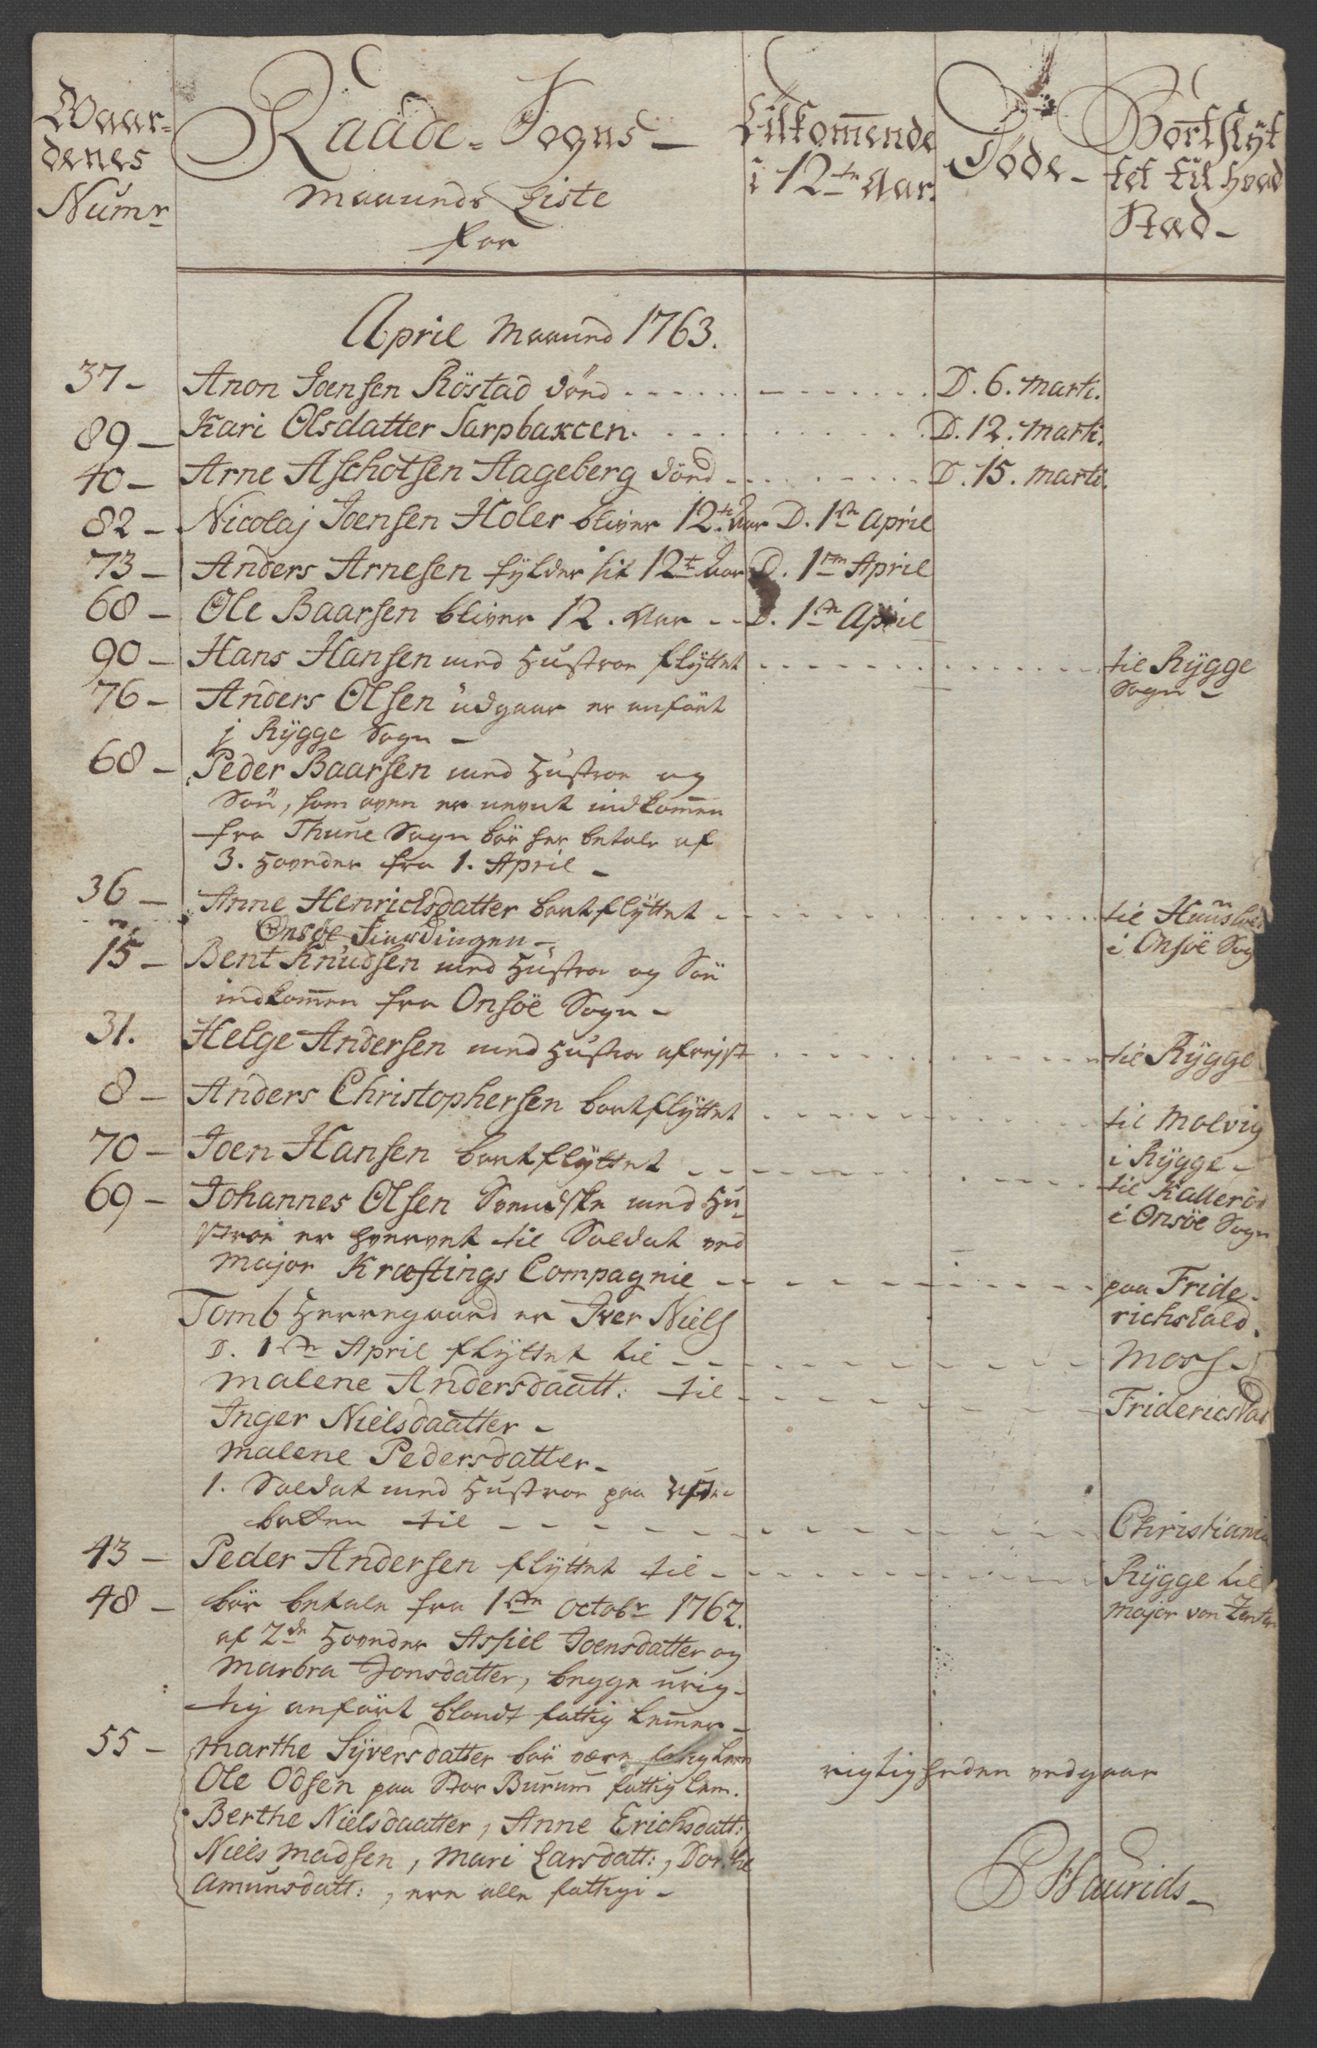 Gaar-
denes
Numr
Raade-Sogns-
Maaneds Liste
for
Tilkommende
i 12te Aar.
Døde-
Bortflyt
tet til hvad
Stæd-
April Maaned 1763.
37- Anon Joensen Röstad död D. 6. Marti.
89- Kari Olsdatter Sarpbakcen. D. 12. Marti.
40- Arne Aschotsen Aageberg död D. 15. Marti.
82- Nicolaj Joensen Holer bliver 12te Aar D. 1ste April
73- Anders Arnesen fylder sit 12te Aar D. 1ste April
68- Ole Baarsen bliver 12. Aar D. 1ste April
90- Hans Hansen med Hustroe flÿttet til Rÿgge
Sogn-
76- Anders Olsen udgaar er anfört
j Rÿgge Sogn-
68- Peder Baarsen med Hustroe og
Sön, som oven er nevnt indkommen
fra Thune Sogn bör her betale af
3. Hoveder fra 1. April-
36- Anne Henrichsdatter bortflÿttet til
Onsöe i Onsöe Sog
15- Bent Knudsen med Hustroe og Sön
indkommen fra Onsöe Sogn-
31. Helge Andersen med Hustroe afrejst til Rÿgge
8- Anders Christophersen bortflÿttet til Molvig
i Rÿgge-
70- Joen Hansen bortflÿttet til Kalleröd
i Onsöe Sogn
69- Johannes Olsen Svendske med Hu-
stroe er hvervet til Soldat ved
Major Kræftings Compagnie paa Fride-
richshald.
Tomb Herregaard er Iver Niels
D. 1ste April flÿttet til Moss-
Malene Andersdaatt: til Fridericstad
Inger Nielsdaatter-
Malene Pedersdatter-
1. Soldat med Hustroe paa
til Christiania
43- Peder Andersen flÿttet til Rÿgge til
Major von
48- bör betale fra 1ste Octobr 1762.
af 2de Hoveder Assiel Joensdatter og
Marbra Jonsdatter, begge urig-
tig anfört blandt fattig Lemmer-
55- Marthe Sÿversdatter bör være fattig Lem
Ole Odsen paa Stor Burum fattig Lem.
Berthe Nielsdaatter, Anne Erichsdatt:
Niels Madsen, Mari Larsdatt:, Dorthe
Amunsdatt:, ere alle fattige-
rigtigheden vedgaar
P Haurids-